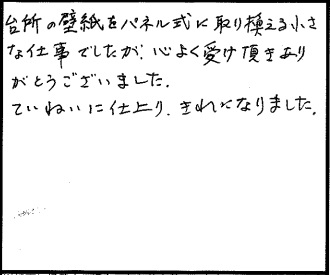 台所の壁紙をパネル式に取り換える小さ
な仕事でしたが、心よく受け頂きあり
がとうございました。
ていねいに仕上り、きれいになりました。